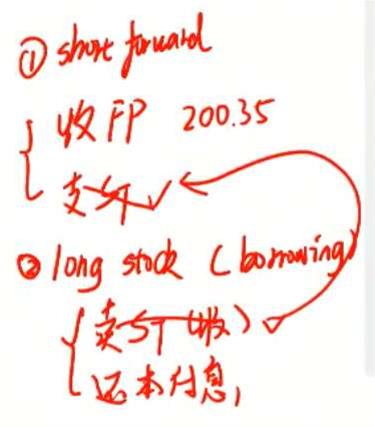 ① short forward
收 FP 200.35
支 ST ✓
② long stock (borrowing)
卖 ST (收) ✓
还本付息,